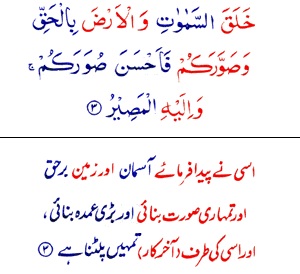 خَلَقَ السَّمٰوٰتِ وَالْاَرْضَ بِالْحَقِّ
وَصَوَّرَكُمْ فَاَحْسَنَ صُوَرَكُمْ ۚ
وَاِلَيْهِ الْمَصِيْرُ ﴿۳﴾
اسی نے پیدا فرمائے آسمان اور زمین برحق
اور تمہاری صورت بنائی اور بڑی عمدہ بنائی،
اور اسی کی طرف (آخر کار) تمہیں پلٹنا ہے ﴿۳﴾